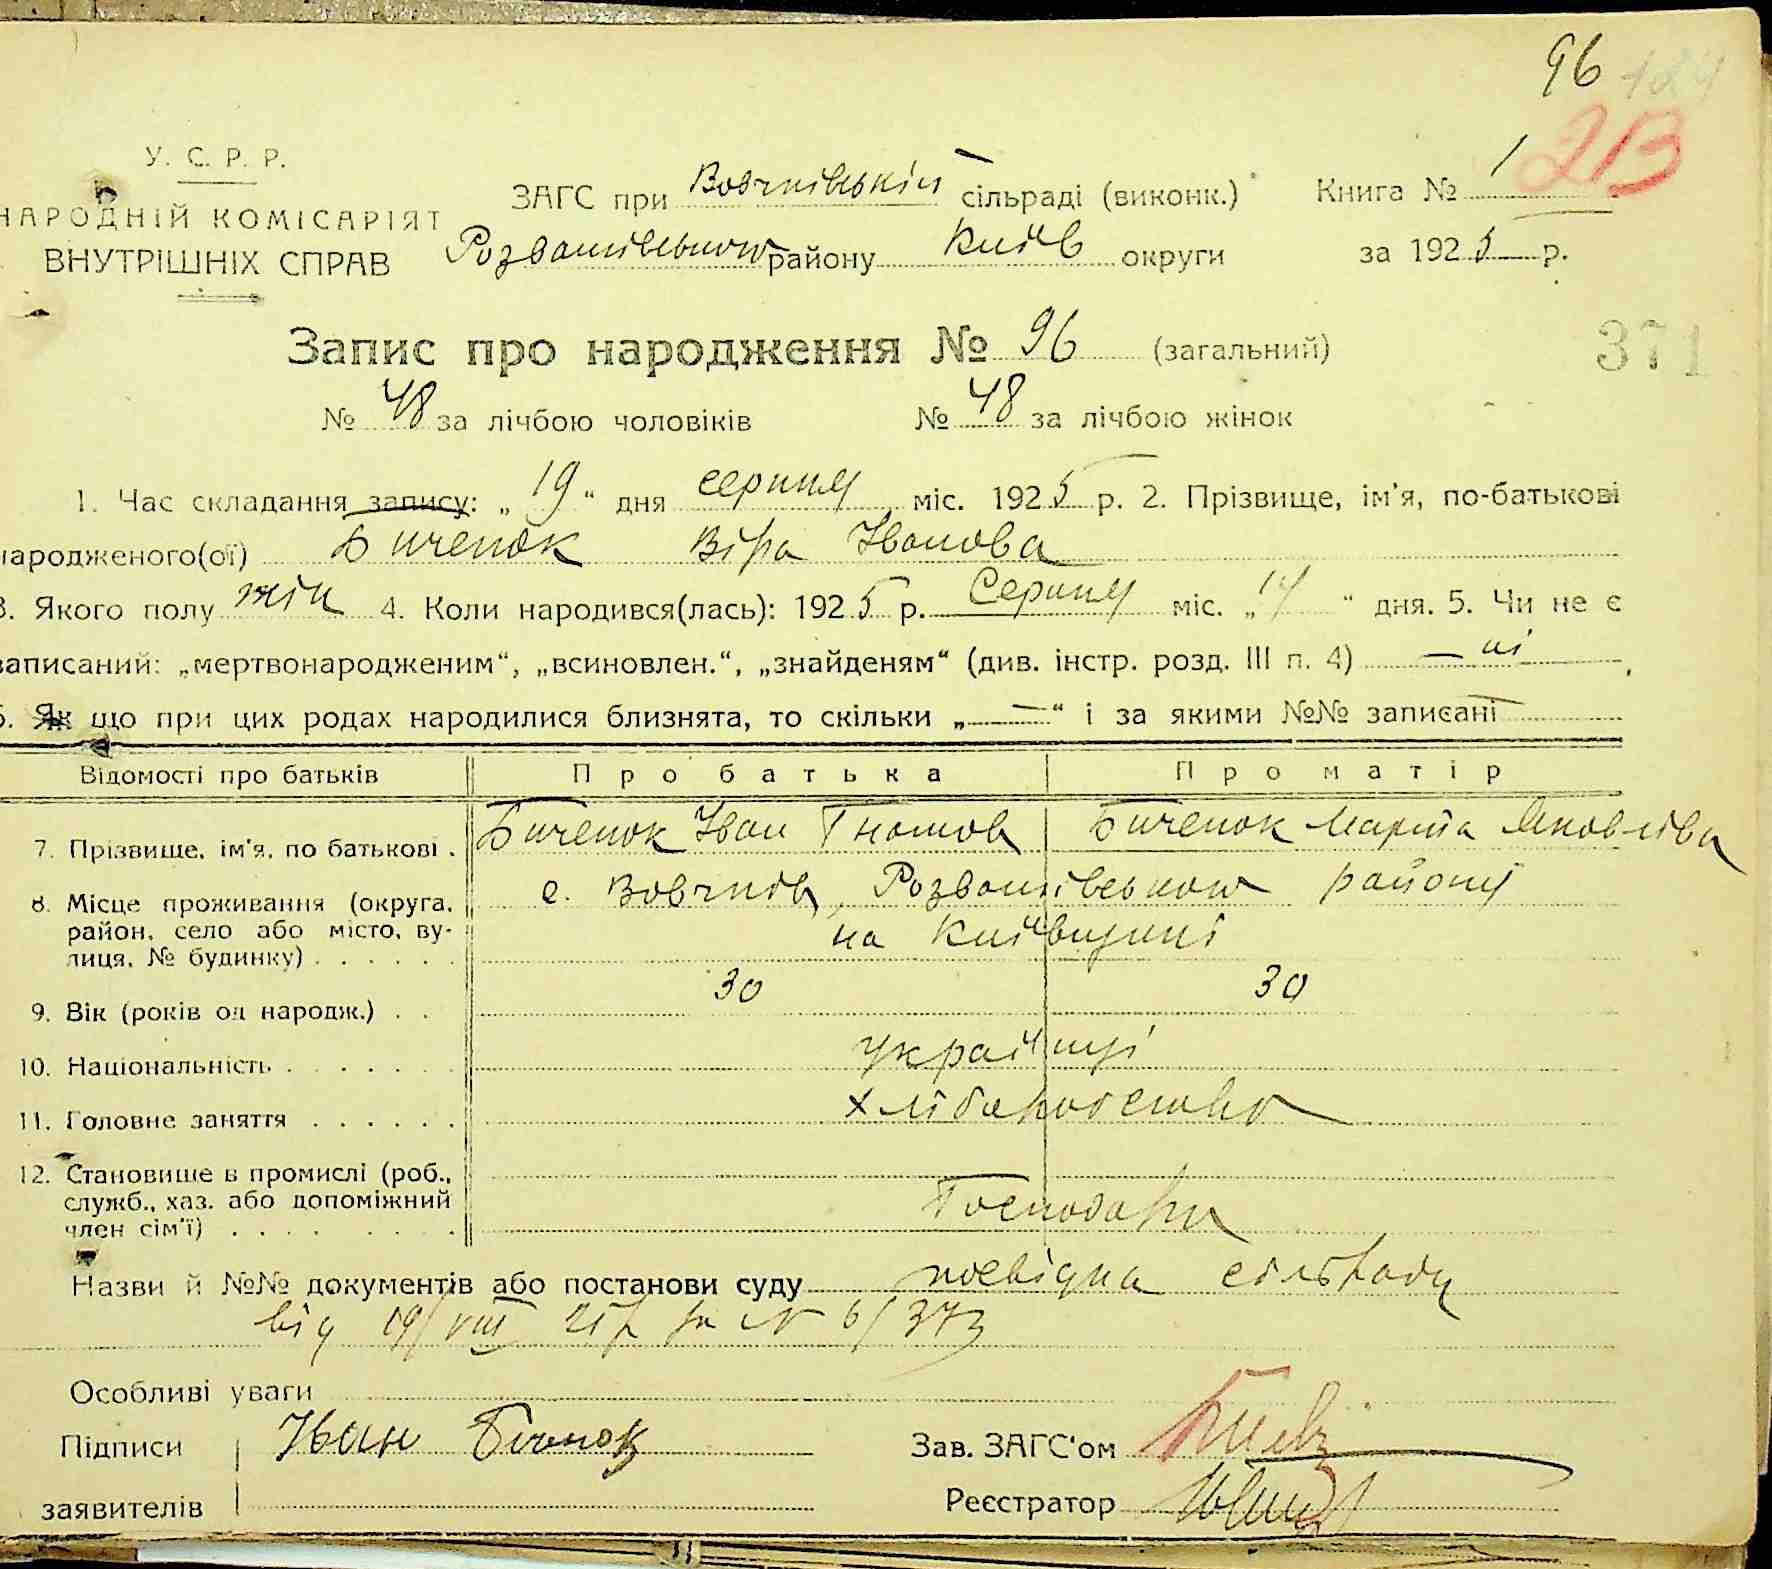 96 124
213
У. С. Р. Р.
НАРОДНІЙ КОМІСАРІЯТ
ВНУТРІШНІХ СПРАВ
ЗАГС при Вовчківській сільраді (виконк.) Книга № 1
Розважівського району Київ округи за 1925 р.
Запис про народження № 96 (загальний)
371
№ 48 за лічбою чоловіків № 48 за лічбою жінок
1. Час складання запису: „ 19 “ дня серпня міс. 1925 р. 2. Прізвище, ім'я, по-батькові
народженого(ої) Биченок Віра Іванова
3. Якого полу жін 4. Коли народився(лась): 1925 р. Серпня міс. „ 14 “ дня. 5. Чи не є
записаний: „мертвонародженим“, „всиновлен.“, „знайденям“ (див. інстр. розд. III п. 4) — ні
6. Як що при цих родах народилися близнята, то скільки „ — “ і за якими №№ записані
Відомості про батьків Про батька Про матір
7. Прізвище, ім'я, по батькові . Биченок Іван Гнатов Биченок Марта Яковлівa
8. Місце проживання (округа, с. Вовчків, Розважівського району
район, село або місто, ву- на Київщині
лиця, № будинку) . . . . . .
9. Вік (років од народж.) . . 30 30
10. Національність . . . . . . . українці
11. Головне заняття . . . . . . хліборобство
12. Становище в промислі (роб.,
служб., хаз. або допоміжний Господари
член сім'ї) . . . . . . . .
Назви й №№ документів або постанови суду посвідка сільради
від 19/VIII 25 р за № 6/373
Особливі уваги
Підписи Іван Зав. ЗАГС'ом
заявителів Реєстратор